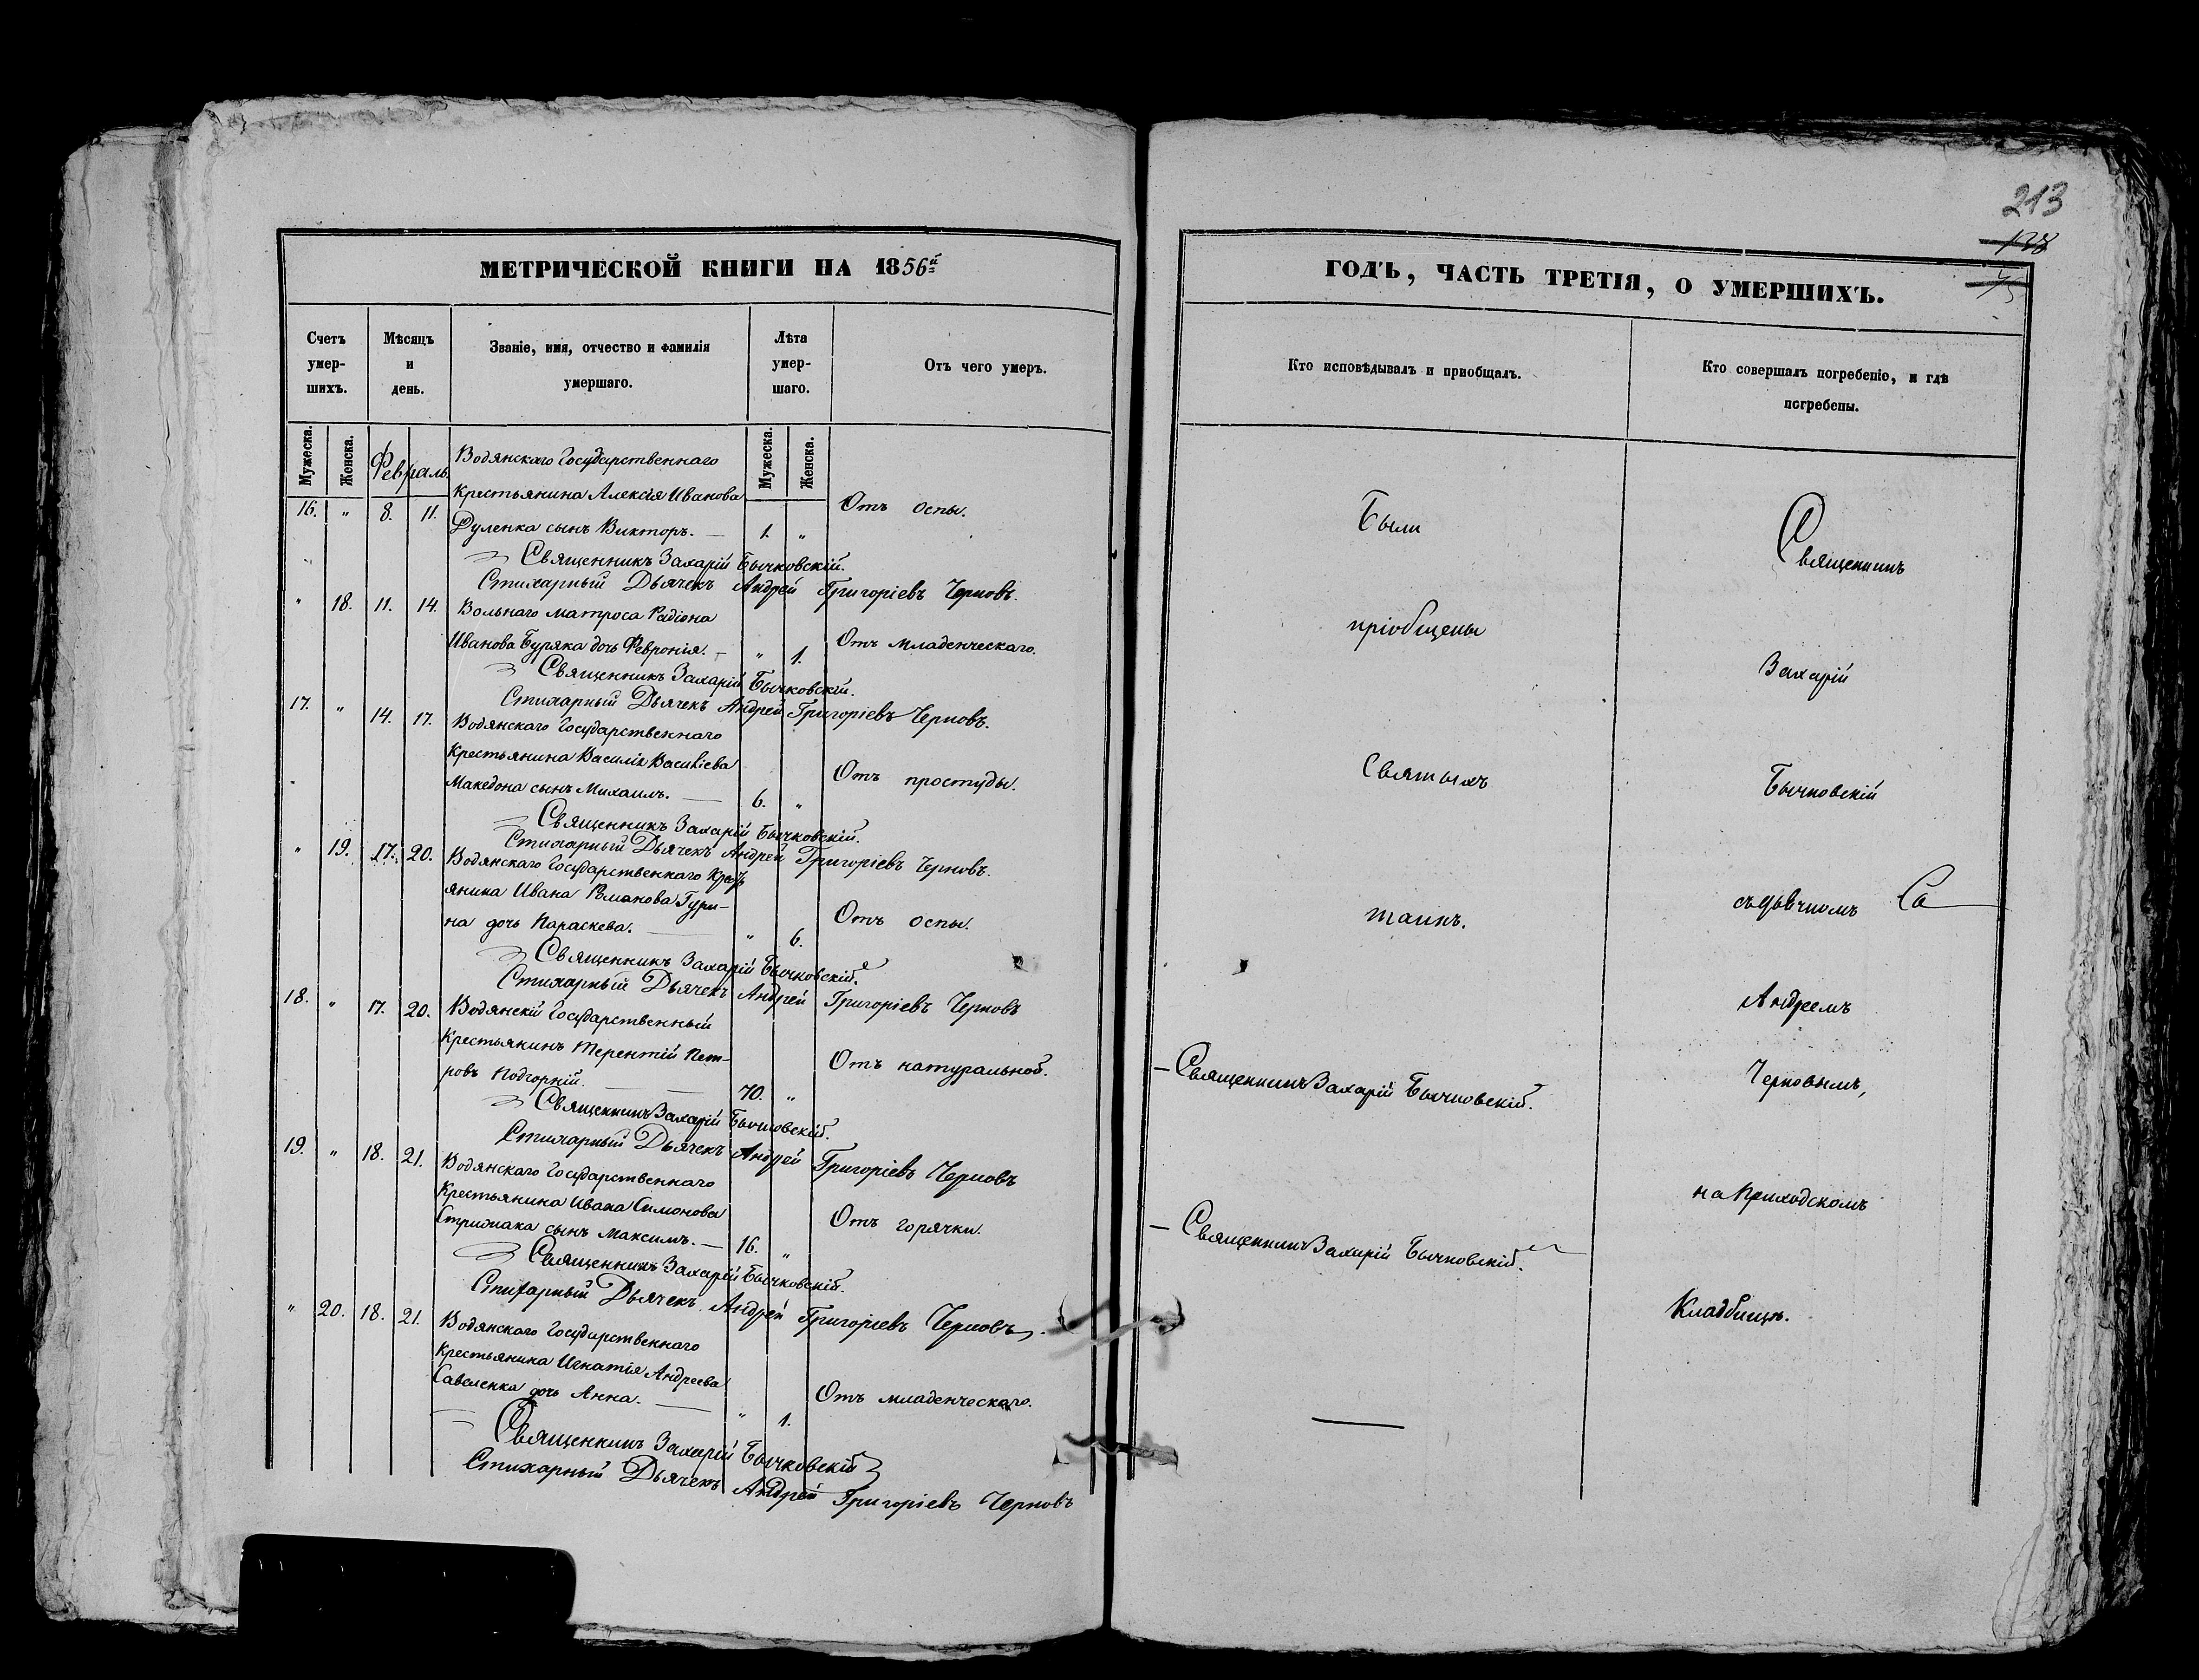 213
МЕТРИЧЕСКОЙ КНИГИ НА 1856й
Счетъ умер- шихъ.
Мѣсяцъ и день.
Званіе, имя, отчество и фамилія умершаго.
Лѣта умер- шаго.
Отъ чего умеръ.
Мужеска. Женска.
Февраль.
Мужеска. Женска.
Водянскаго Государственнаго
Крестьянина Алексія Иванова
16. " 8. 11. Дуленка сынъ Викторъ. — 1. " Отъ оспы.
Священникъ Захарій Бычковскій.
Стихарный Дьячекъ Андрей Григоріевъ Черновъ.
" 18. 11. 14. Вольнаго матроса Радіона
Иванова Буряка дочь Февронія. — " 1. Отъ младенческаго.
Священникъ Захарій Бычковскій.
Стихарный Дьячекъ Андрей Григоріевъ Черновъ.
17. " 14. 17. Водянскаго Государственнаго
Крестьянина Василія Василіева
Македона сынъ Михаилъ. — 6. " Отъ простуды.
Священникъ Захарій Бычковскій.
Стихарный Дьячекъ Андрей Григоріевъ Черновъ.
" 19. 17. 20. Водянскаго Государственнаго Крест
янина Ивана Романова Гури-
на дочь Параскева. — " 6. Отъ оспы.
Священникъ Захарій Бычковскій.
Стихарный Дьячекъ Андрей Григоріевъ Черновъ
18. " 17. 20. Водянскій Государственный
Крестьянинъ Терентій Пет-
ровъ Подгорній. — 70. " Отъ натуральной.
Священникъ Захарій Бычковскій.
Стихарный Дьячекъ Андрей Григоріевъ Черновъ
19. " 18. 21. Водянскаго Государственнаго
Крестьянина Ивана Симонова
Стрижака сынъ Максимъ. — 16. " Отъ горячки.
Священникъ Захарій Бычковскій.
Стихарный Дьячекъ Андрей Григоріевъ Черновъ.
" 20. 18. 21. Водянскаго Государственнаго
Крестьянина Игнатія Андреева
Савеленка дочь Анна. — " 1. Отъ младенческаго.
Священникъ Захарій Бычковскій
Стихарный Дьячекъ Андрей Григоріевъ Черновъ
ГОДЪ, ЧАСТЬ ТРЕТІЯ, О УМЕРШИХЪ.
Кто исповѣдывалъ и пріобщалъ.
Кто совершалъ погребеніе, и гдѣ погребены.
Были
пріобщены
Святыхъ
таинъ.
— Священникъ Захарій Бычковскій.
— Священникъ Захарій Бычковскій.
Священникъ
Захарій
Бычковскій
съ дьячкомъ
Андреемъ
Черновымъ,
на Приходскомъ
Кладбищѣ.